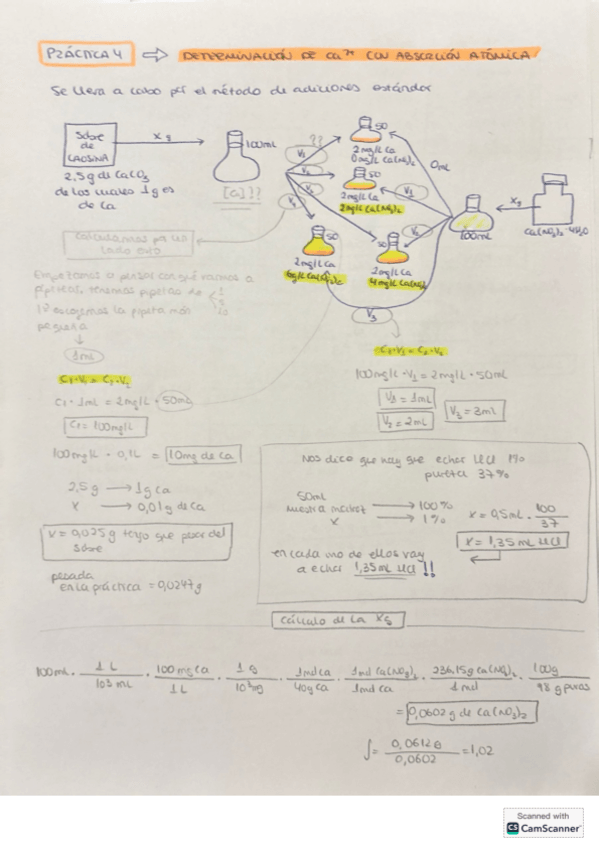 PRÁCTICA 4 ⇒ DETERMINACIÓN DE Ca²⁺ CON ABSORCIÓN ATÓMICA
Se lleva a cabo por el método de adiciones estándar
Sobre
de
CAOSINA
X g
100mL
[Ca]??
2,5g de CaCO3
de los cuales 1g es
de Ca
??
50
2mg/L Ca
0mg/L Ca(NO3)2
0mL
50
2mg/L Ca
2mg/L Ca(NO3)2
50
2mg/L Ca
6mg/L Ca(NO3)2
50
2mg/L Ca
4mg/L Ca(NO3)2
V1
V2
V3
100mL
Xg
Ca(NO3)2·4H2O
Calculamos por un
lado esto
Empezamos a pensar con qué vamos a
pipetear, tenemos pipetas de
1º escogemos la pipeta más
pequeña
1mL
C1·V1 = C2·V2
C1 · 1mL = 2mg/L · 50mL
C1 = 100mg/L
100mg/L · 0,1L = 10mg de Ca
2,5g → 1g Ca
X → 0,01g de Ca
X = 0,025g tengo que pesar del
sobre
pesada
en la práctica = 0,0247g
C1·V1 = C2·V2
100mg/L · V1 = 2mg/L · 50mL
V1 = 1mL
V2 = 2mL
V3 = 3mL
Nos dice que hay que echar HCl 1%
pureza 37%
50mL
→ 100%
X → 1%
X = 0,5mL · 100/37
X = 1,35mL HCl
en cada uno de ellos voy
a echar 1,35mL HCl !!
Cálculo de la Xg
100mL · 1L/10³mL · 100mg Ca/1L · 1g/10³mg · 1mol Ca/40g Ca · 1mol Ca(NO3)2/1mol Ca · 236,15g Ca(NO3)2/1mol · 100g/98g puros
= 0,0602g de Ca(NO3)2
∫ = 0,0612g/0,0602 = 1,02
Scanned with
CS CamScanner